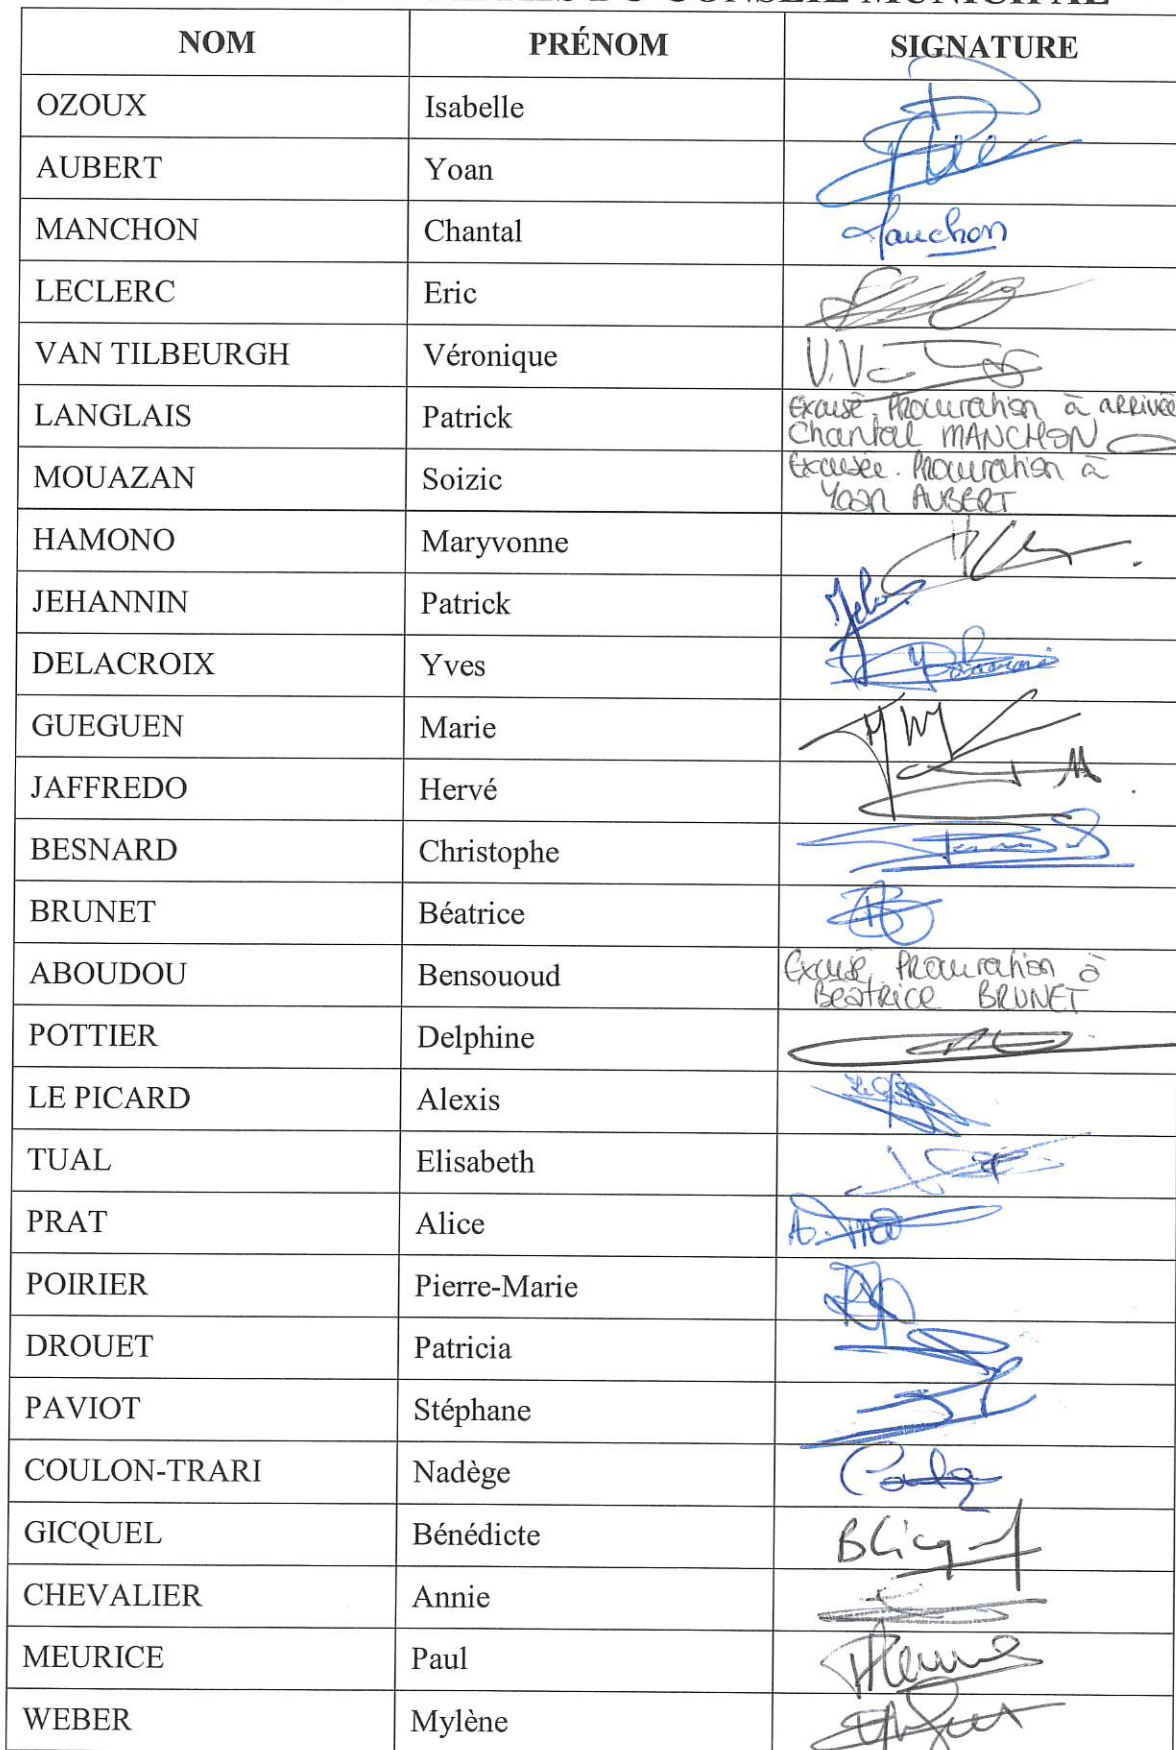 DU CONSEIL MUNICIPAL
NOM PRÉNOM SIGNATURE
OZOUX Isabelle
AUBERT Yoan
MANCHON Chantal Manchon
LECLERC Eric
VAN TILBEURGH Véronique
LANGLAIS Patrick Excusé. Procuration à arrivée
Chantal MANCHON
MOUAZAN Soizic Excusée. Procuration à
Yoan AUBERT
HAMONO Maryvonne
JEHANNIN Patrick
DELACROIX Yves
GUEGUEN Marie
JAFFREDO Hervé
BESNARD Christophe
BRUNET Béatrice
ABOUDOU Bensououd Excusé. Procuration à
Béatrice BRUNET
POTTIER Delphine
LE PICARD Alexis
TUAL Elisabeth
PRAT Alice
POIRIER Pierre-Marie
DROUET Patricia
PAVIOT Stéphane
COULON-TRARI Nadège
GICQUEL Bénédicte
CHEVALIER Annie
MEURICE Paul
WEBER Mylène